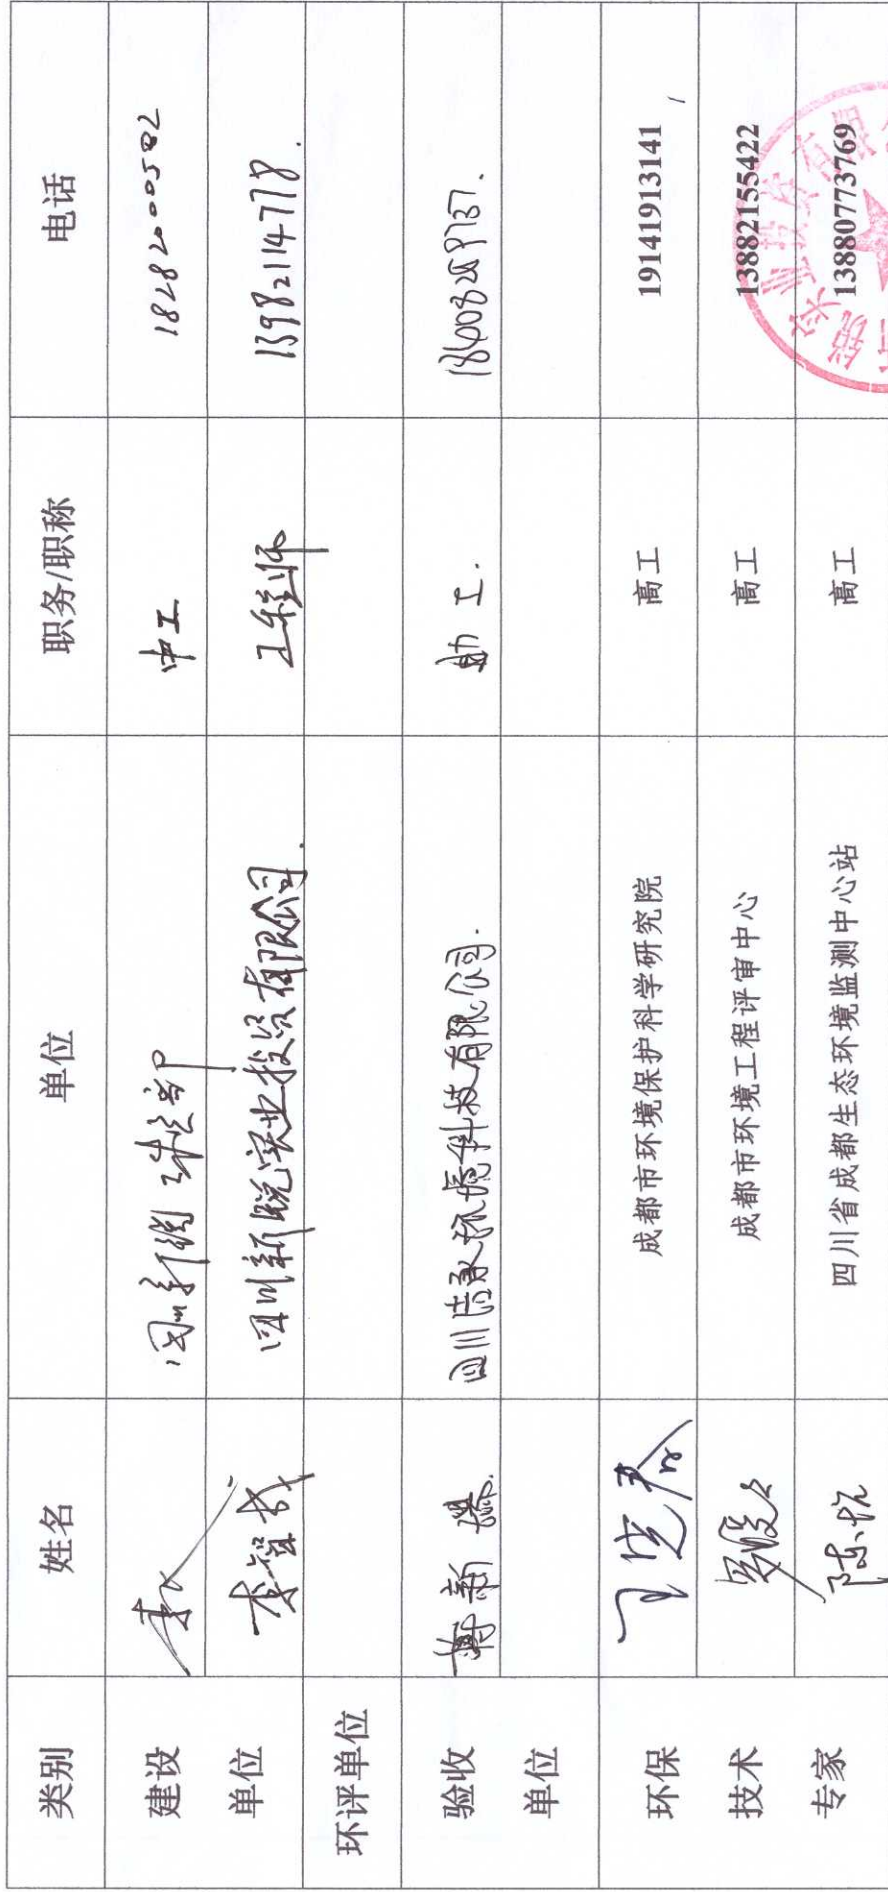 类别 姓名 单位 职务/职称 电话
建设 中工 18282000582
单位 李智成 四川新锐实业投资有限公司. 工程师 13982114778.
环评单位
验收 蒋新 四川 环境科技有限公司. 助工. 
单位
环保 成都市环境保护科学研究院 高工 19141913141
技术 成都市环境工程评审中心 高工 13882155422
专家 陈 四川省成都生态环境监测中心站 高工 13880773769
锐实业投资有限